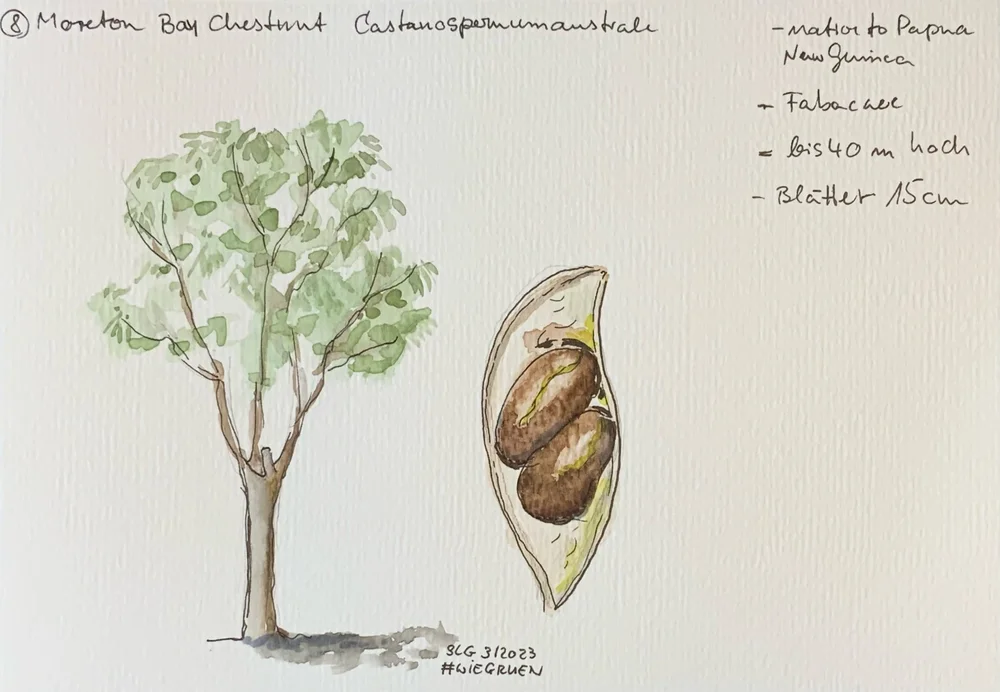 8 Moreton Bay Chestnut Castanospermumaustrale
- native to Papua
New Guinea
- Fabaceae
- bis 40 m hoch
- Blätter 15cm
SLG 3/2023
#WIEGRUEN